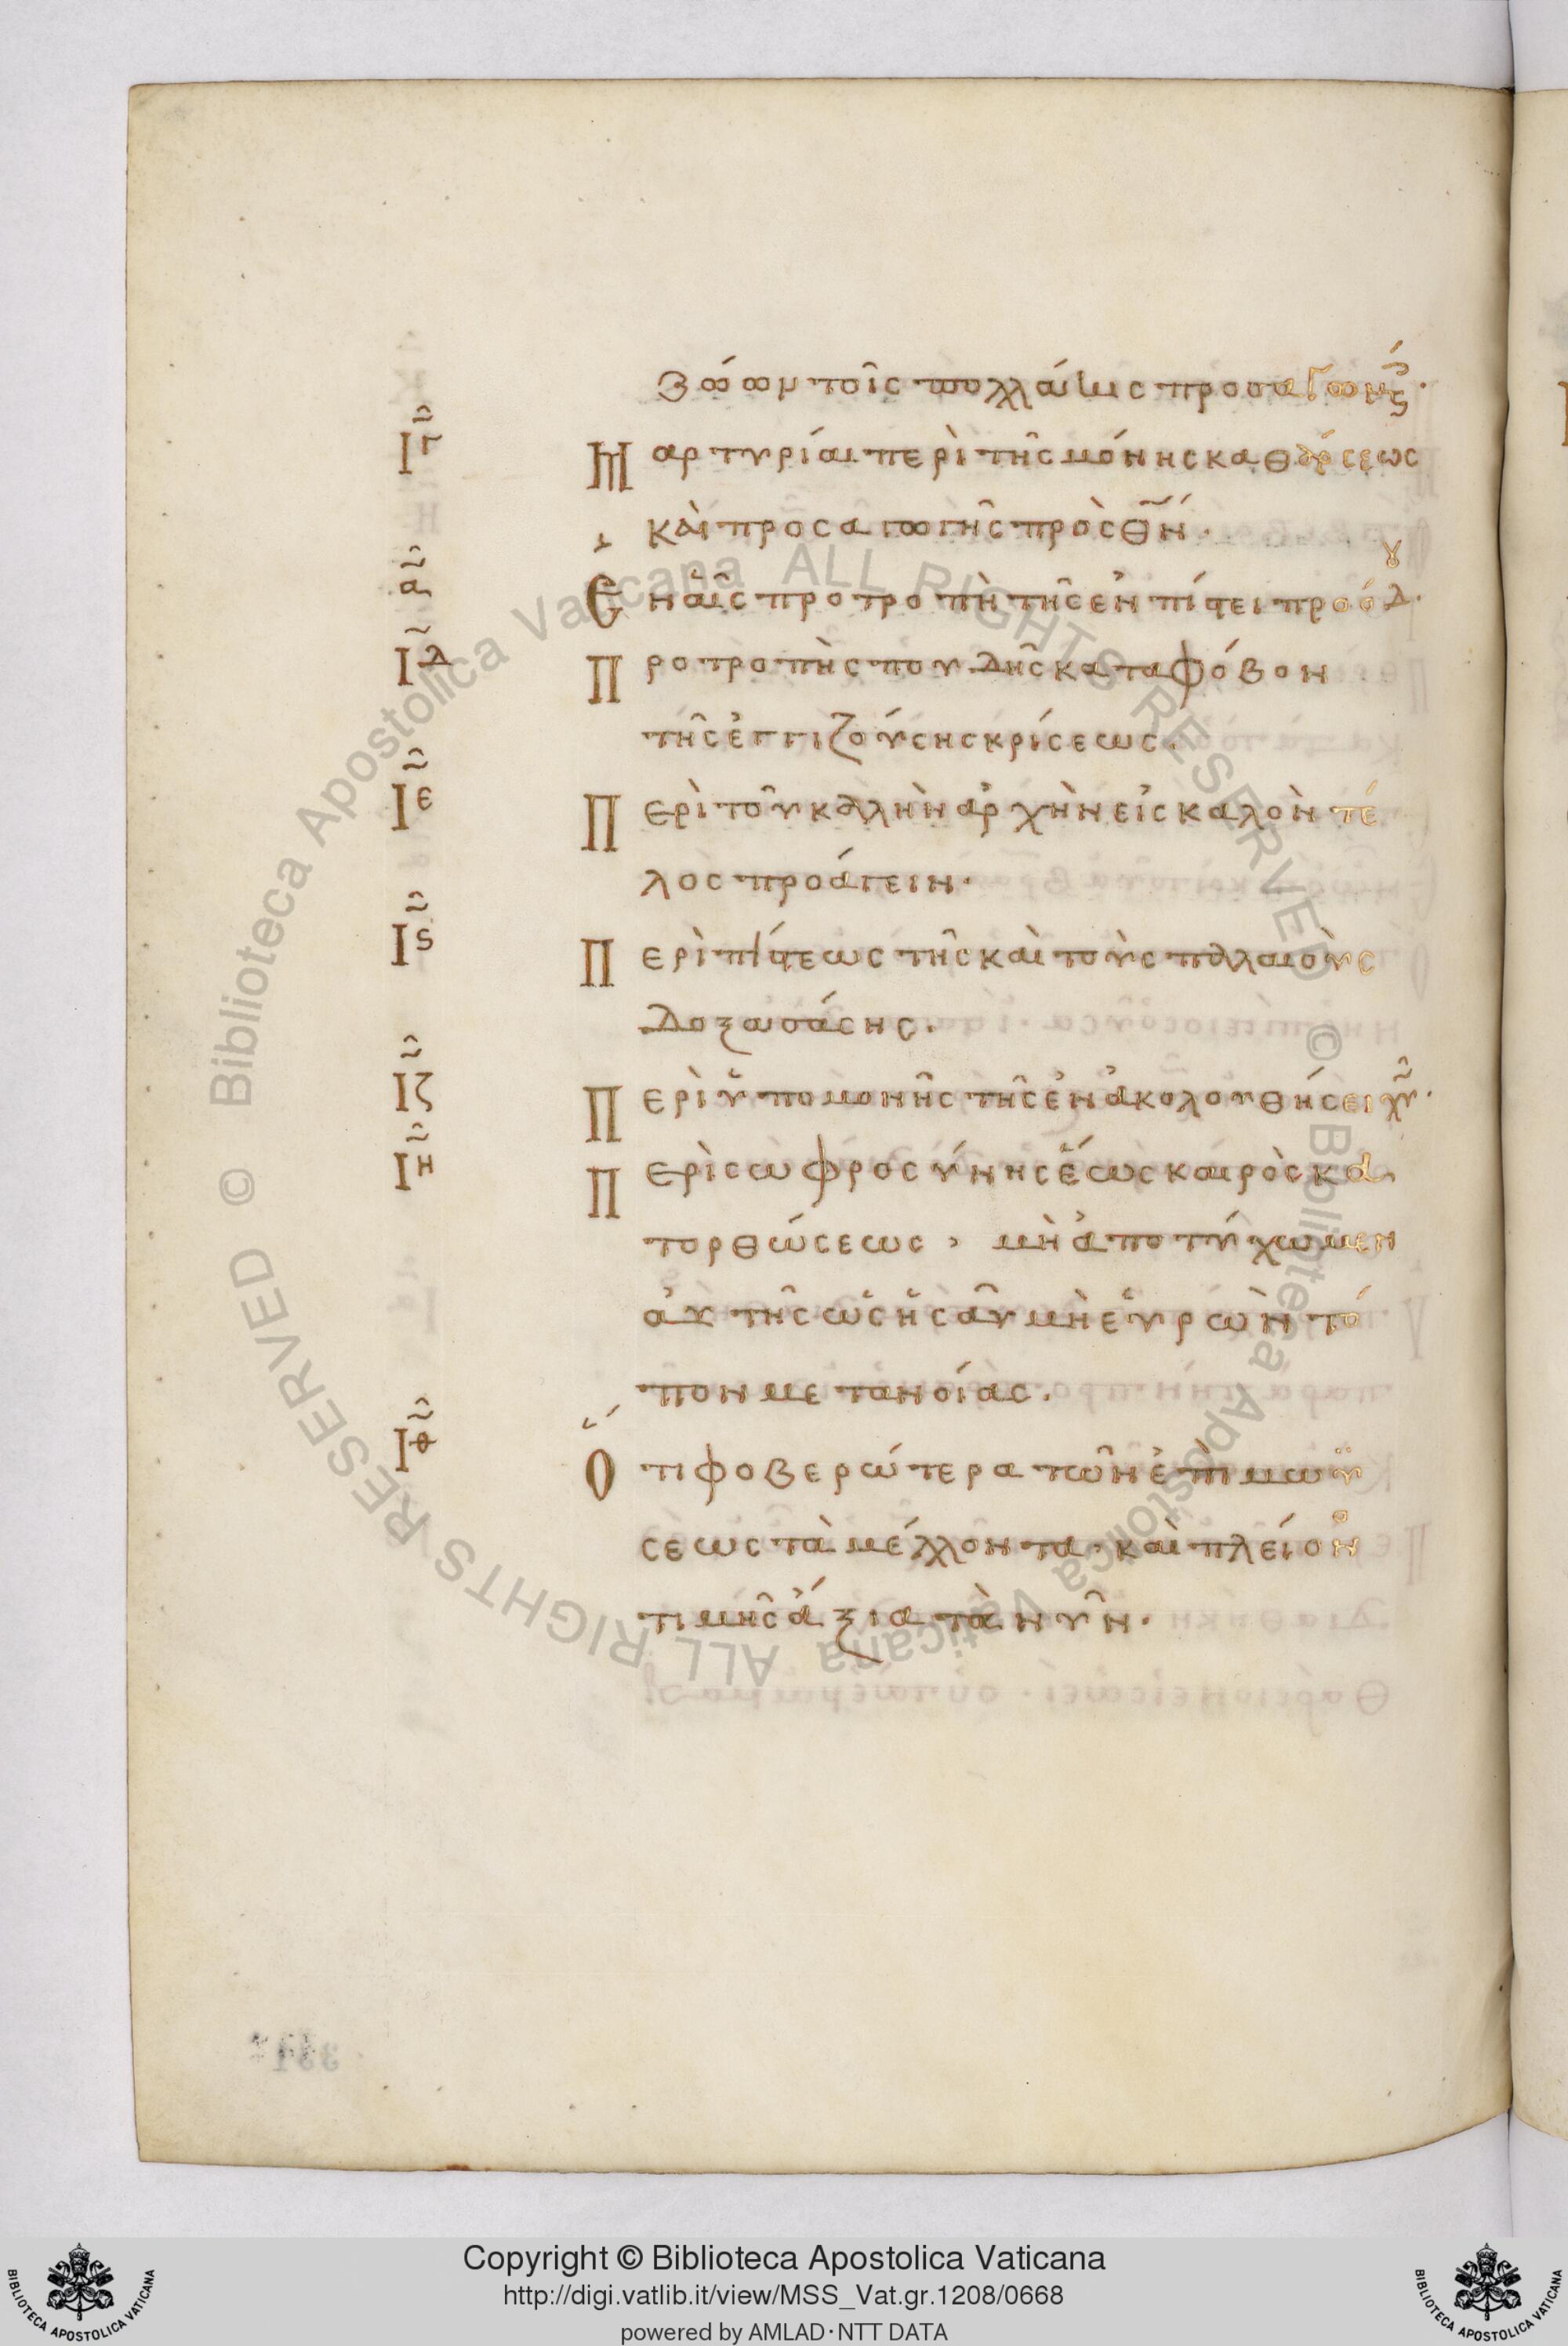 ζώων τοῖς πολλάκις προσαγωγ
ΙΓ Μαρτυρίαι περὶ τῆς μόνης καθάρσεως
καὶ προσαγωγῆς πρὸς θν̄.
α Ἐν αἷς προτροπὴ τῆς ἐν πίστει προόδου.
ΙΔ Προτροπὴ σπουδῆς κατα φόβον
τῆς ἐγγιζούσης κρίσεως.
ΙΕ Περὶ τοῦ καλὴν ἀρχὴν εἰς καλὸν τέ
λος προάγειν.
Ις Περὶ πίστεως τῆς καὶ τοὺς παλαιοὺς
δοξασάσης.
ΙΖ Περὶ ὑπομονῆς τῆς ἐν ἀκολουθήσει χῡ.
ΙΗ Περὶ σωφροσύνης ἕως καιρὸς κα
τορθώσεως, μὴ ἀποτύχωμεν
αὐτῆς ὡς ἡσαῦ μὴ εὑρὼν τό
πον μετανοίας.
ΙΘ Ὅτι φοβερώτερα τῶν ἐπὶ μωϋ
σεως τὰ μέλλοντα· καὶ πλείονος
τιμῆς ἄξια τὰ νῦν.
Copyright © Biblioteca Apostolica Vaticana
http://digi.vatlib.it/view/MSS_Vat.gr.1208/0668
powered by AMLAD·NTT DATA
BIBLIOTECA APOSTOLICA VATICANA
BIBLIOTECA APOSTOLICA VATICANA
© Biblioteca Apostolica Vaticana ALL RIGHTS RESERVED
© Biblioteca Apostolica Vaticana ALL RIGHTS RESERVED